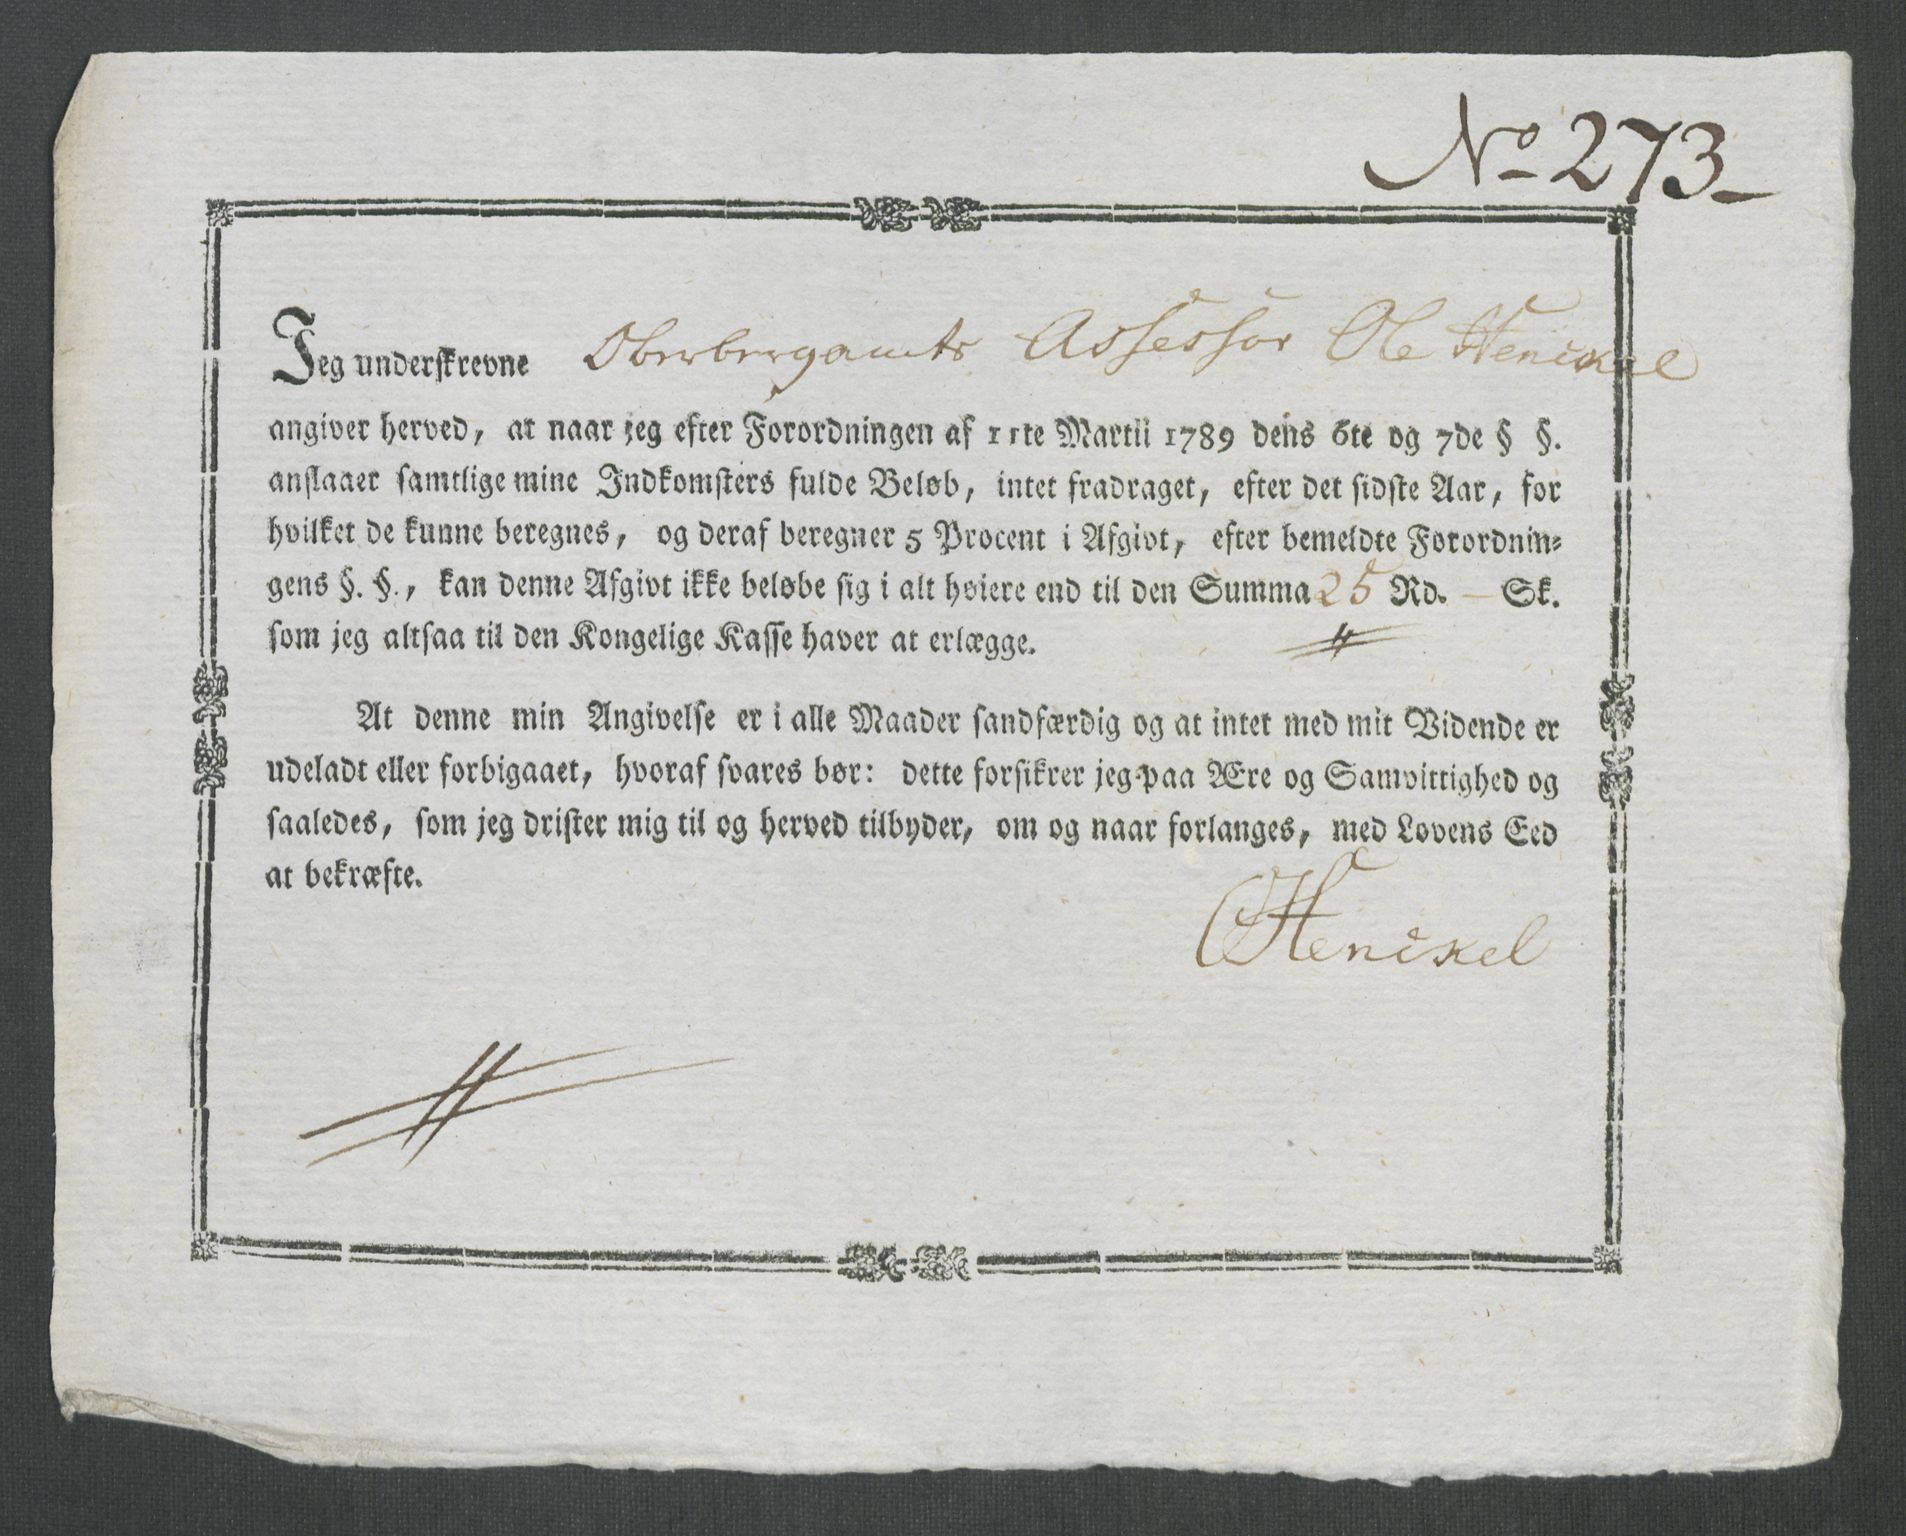 No 273
Jeg underskrevne Oberbergamts Assessor Ole Henckel
angiver herved, at naar jeg efter Forordningen af 11te Martii 1789 dens 6te og 7de § §.
anslaaer samtlige mine Indkomsters fulde Beløb, intet fradraget, efter det sidste Aar, for
hvilket de kunne beregnes, og deraf beregner 5 Procent i Afgivt, efter bemeldte Forordnin=
gens §. §., kan denne Afgivt ikke beløbe sig i alt høiere end til den Summa 25 Rd. — Sk.
som jeg altsaa til den Kongelige Kasse haver at erlægge.
At denne min Angivelse er i alle Maader sandfærdig og at intet med mit Vidende er
udeladt eller forbigaaet, hvoraf svares bør: dette forsikrer jeg paa Ære og Samvittighed og
saaledes, som jeg drister mig til og herved tilbyder, om og naar forlanges, med Lovens Eed
at bekræfte.
OHenckel